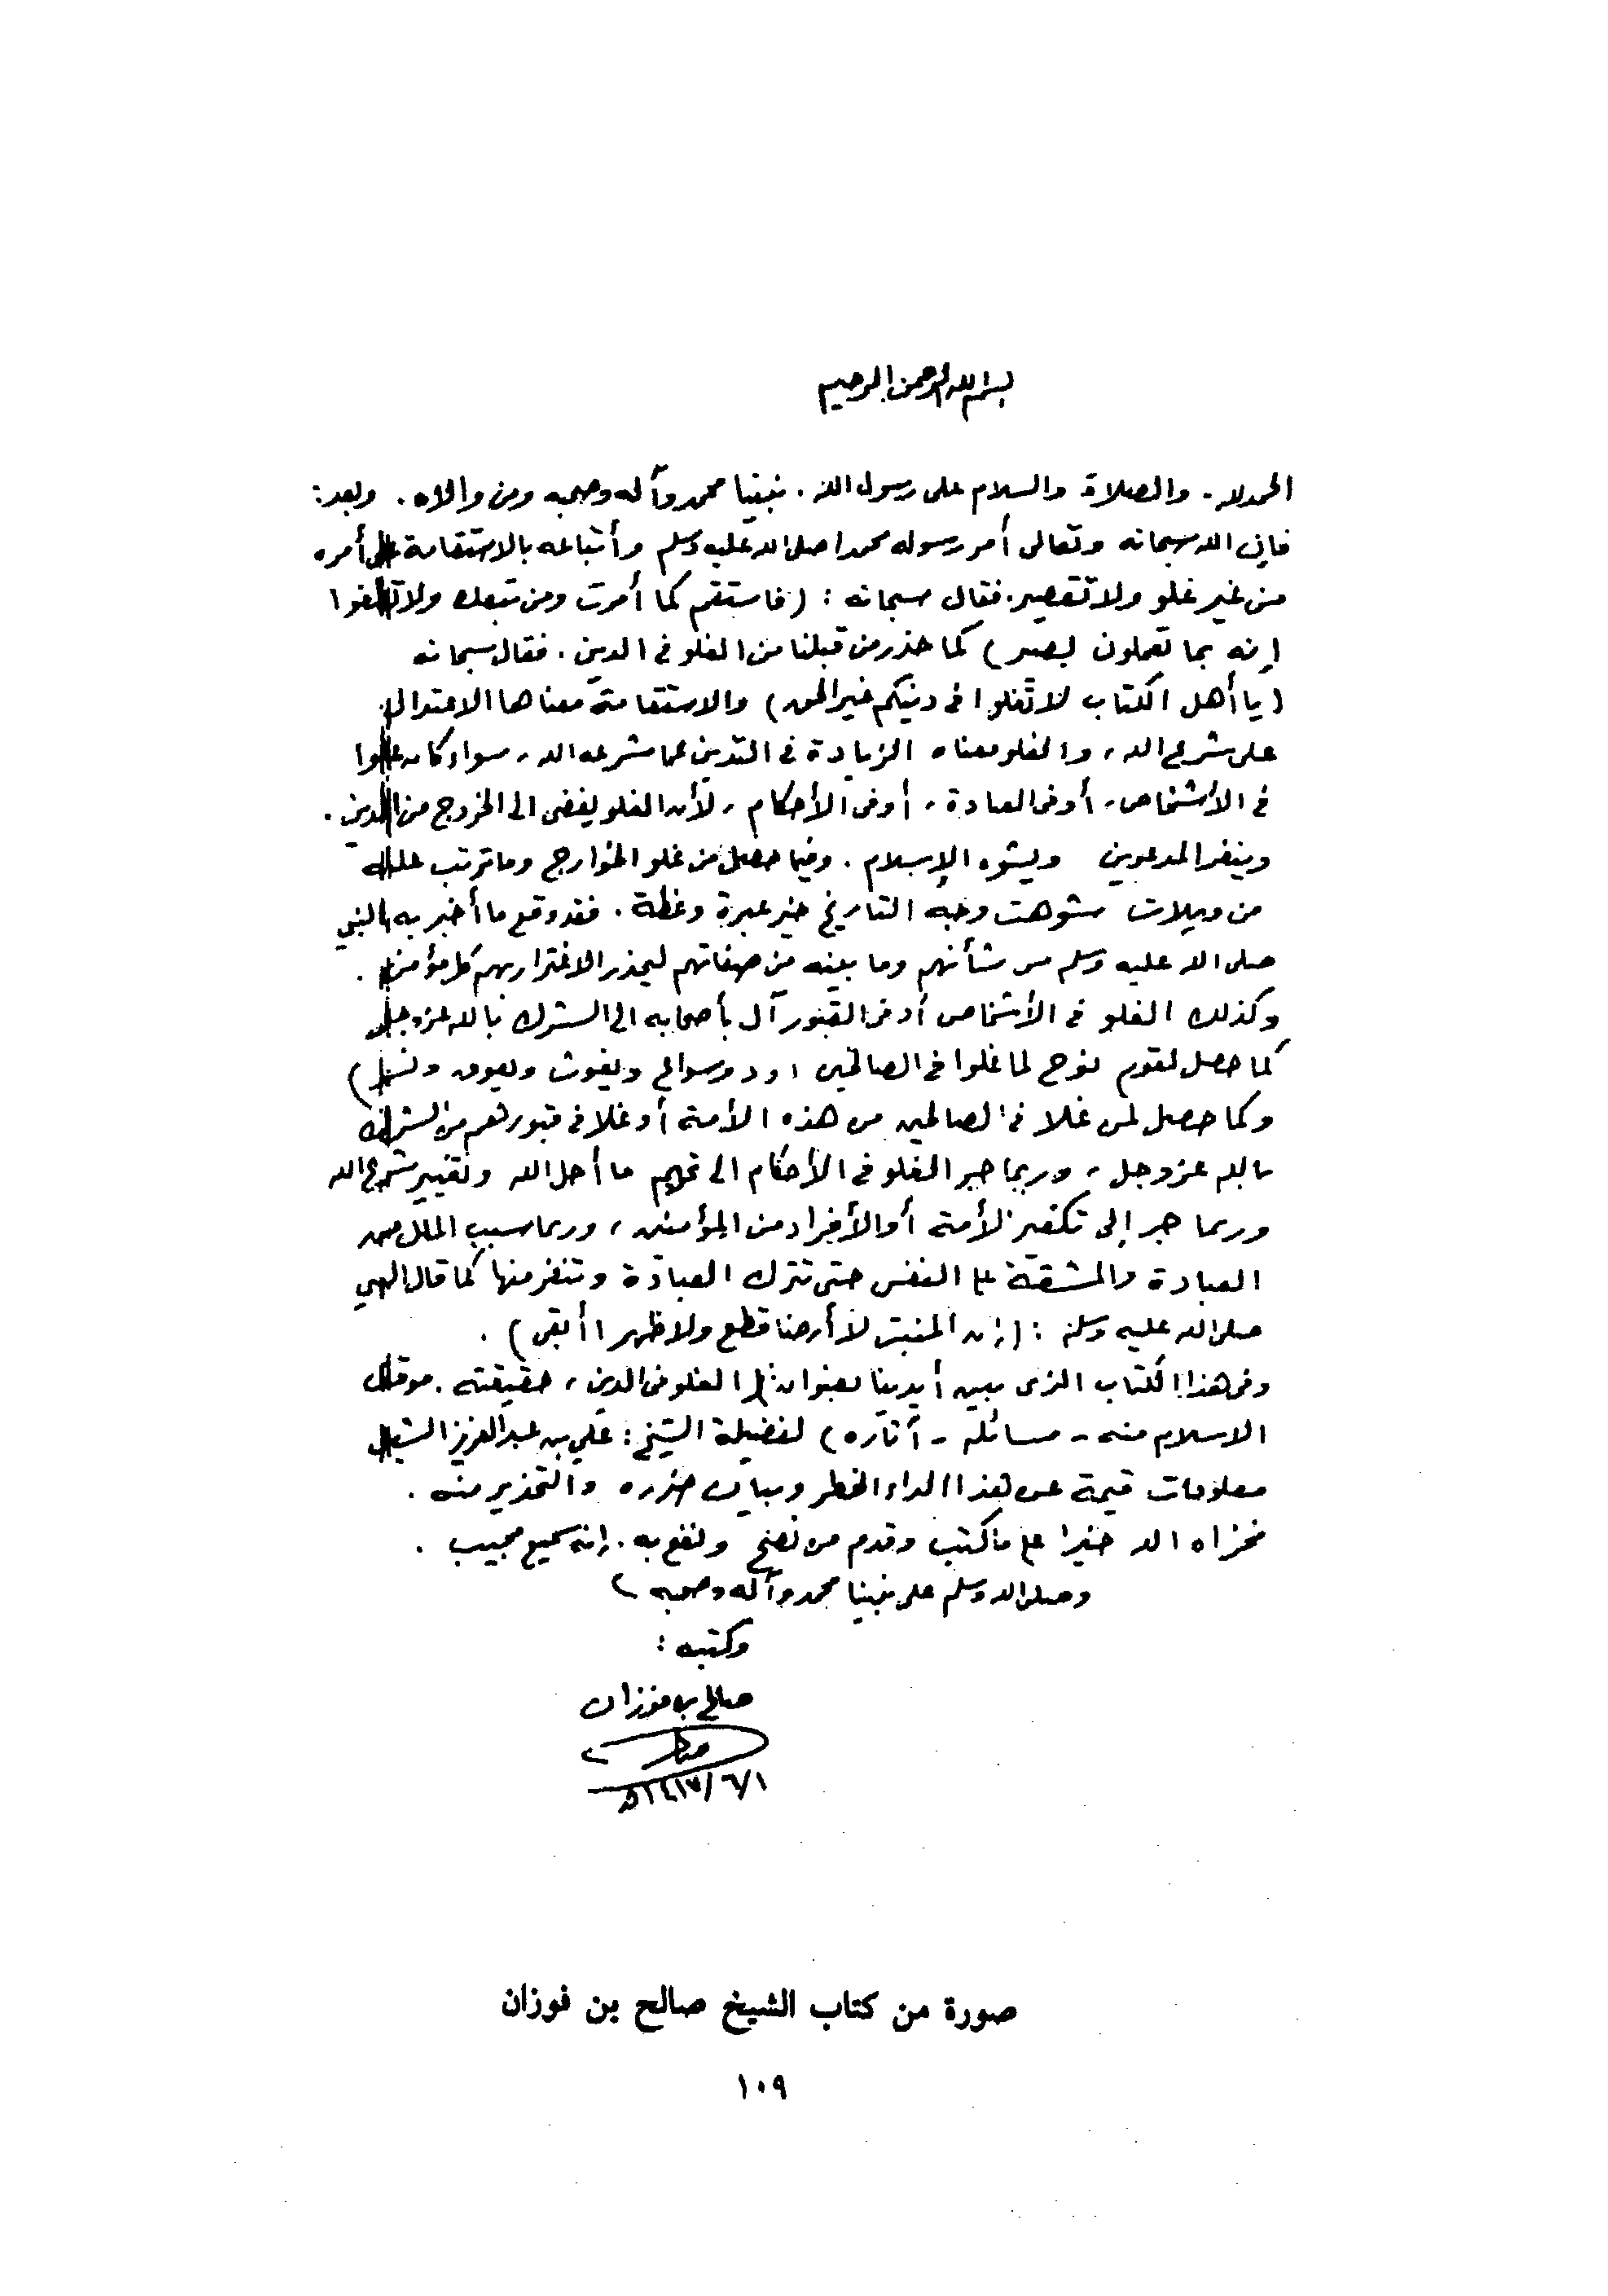 بسم الله الرحمن الرحيم
الحمد لله. والصلاة والسلام على رسول الله. نبينا محمد وآله وصحبه ومن والاه. وبعد:
فإن الله سبحانه وتعالى أمر رسوله محمدا صلى الله عليه وسلم وأتباعه بالاستقامة على أمره
من غير غلو ولا تقصير. فقال سبحانه: (فاستقم كما أمرت ومن تبعك ولا تطغوا
إنه بما تعملون بصير) كما حذر من قبلنا من الغلو في الدين. فقال سبحانه
(يا أهل الكتاب لا تغلوا في دينكم غير الحق) والاستقامة معناها الاعتدال
على شرع الله، والغلو معناه الزيادة في التدين عما شرعه الله، سواء كان غلوا
في الأشخاص، أو في العبادة، أو في الأحكام، لأن الغلو يفضي الى الخروج من الدين.
وينفر المدعوين ويشوه الإسلام. وفيما حصل من غلو الخوارج وما ترتب عليه
من ويلات شوهت وجه التاريخ خير عبرة وعظة. فقد وقع ما أخبر به النبي
صلى الله عليه وسلم من شأنهم وما بينه من صفاتهم ليحذر الاغترار بهم كل مؤمن.
وكذلك الغلو في الأشخاص أو في القبور آل بأصحابه الى الشرك بالله عزوجل
كما حصل لقوم نوح لما غلوا في الصالحين (ود وسواع ويغوث ويعوق ونسر)
وكما حصل لمن غلا في الصالحين من هذه الأمة أو غلا في قبورهم من الشرك
بالله عز وجل، وربما جر الغلو في الأحكام الى تحريم ما أحل الله وتغيير شرع الله
وربما جر إلى تكفير الأمة أو الأفراد من المؤمنين، وربما سبب الملل من
العبادة والمشقة على النفس حتى تترك العبادة وتنفر منها كما قال النبي
صلى الله عليه وسلم: (إن المنبت لا أرضا قطع ولا ظهرا أبقى).
وفي هذا الكتاب الذي بين أيدينا بعنوان: (الغلو في الدين، حقيقته. موقف
الاسلام منه - مسائله - آثاره) لفضيلة الشيخ: علي بن عبد العزيز الشبل
معلومات قيمة عن هذا الداء الخطر وبيان ضرره والتحذير منه.
فجزاه الله خيرا على ما كتب وقدم من نصح ونفع به. إنه سميع مجيب.
وصلى الله وسلم على نبينا محمد وآله وصحبه)
وكتبه:
صالح بن فوزان
١/٦/١٤١٧هـ
صورة من كتاب الشيخ صالح بن فوزان
١٠٩